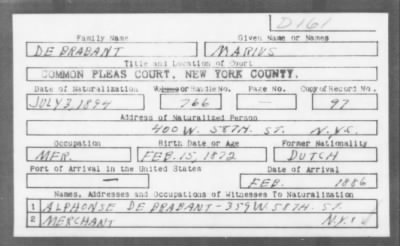 D161
Family Name Given Name or Names
DE BRABANT MARIUS
Title and Location of Court
COMMON PLEAS COURT, NEW YORK COUNTY.
Date of Naturalization Volume or Bundle No. Page No. Copy of Record No.
JULY 3, 1894 766 — 97
Address of Naturalized Person
400 W. 58TH. ST. N.Y.C.
Occupation Birth Date or Age Former Nationality
MER. FEB. 15, 1872 DUTCH
Port of Arrival in the United States Date of Arrival
— FEB. 1886
Names, Addresses and Occupations of Witnesses To Naturalization
1 ALPHONSE DE BRABANT - 359 W 58TH. ST
2 MERCHANT N.Y.C